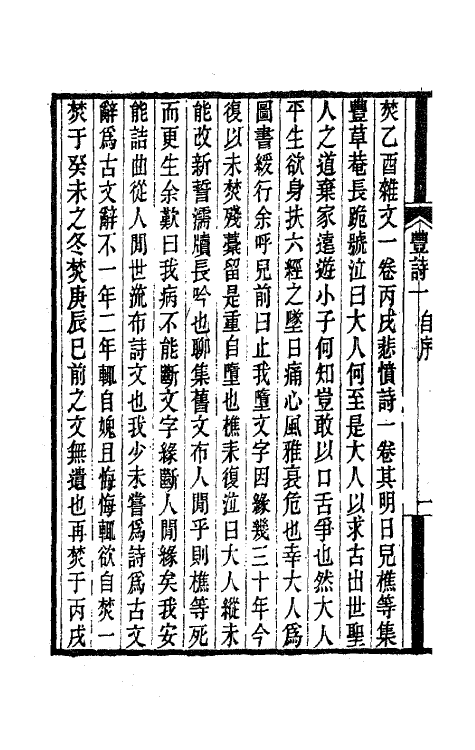 豐詩一　自序
焚乙酉雜文一卷丙戌悲憤詩一卷其明日兒樵等集
豐草菴長跪號泣曰大人何至是大人以求古出世聖
人之道棄家遠遊小子何知豈敢以口舌爭也然大人
平生欲身扶六經之墜日痛心風雅哀危也幸大人為
圖書緩行余呼兒前曰止我墮文字因緣幾三十年今
復以未焚殘藁留是重自墮也樵未復泣曰大人縱未
能改新誓濡牘長吟也聊集舊文布人閒乎則樵等死
而更生余歎曰我病不能斷文字緣斷人閒緣矣我安
能詰曲從人閒世流布詩文也我少未嘗為詩為古文
辭為古文辭不一年二年輒自媿且悔悔輒欲自焚一
焚于癸未之冬焚庚辰巳前之文無遺也再焚于丙戌